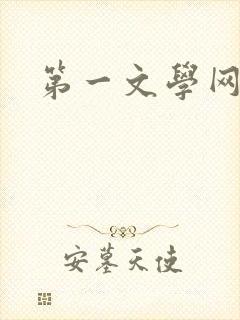 第一文學网
安墓天使